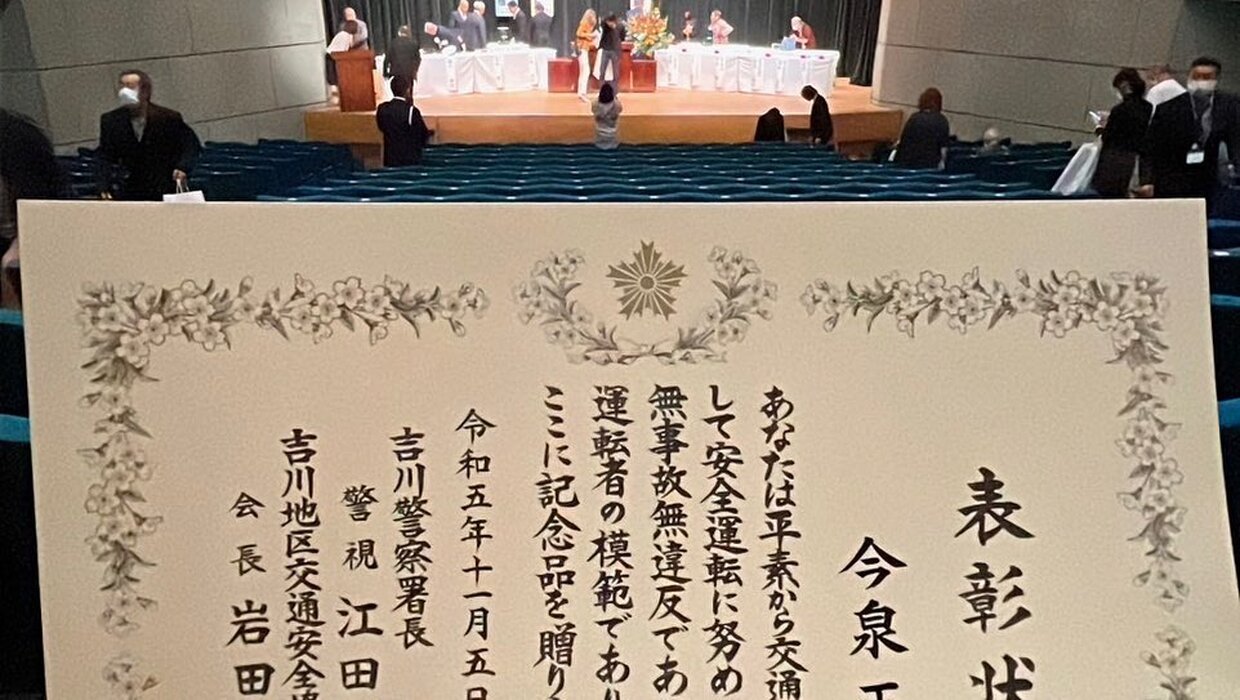 表彰状
今泉
あなたは平素から交通
して安全運転に努め
無事故無違反であ
運転者の模範であり
ここに記念品を贈り
令和五年十一月五日
吉川警察署長
警視 江田
吉川地区交通安全
会長 岩田